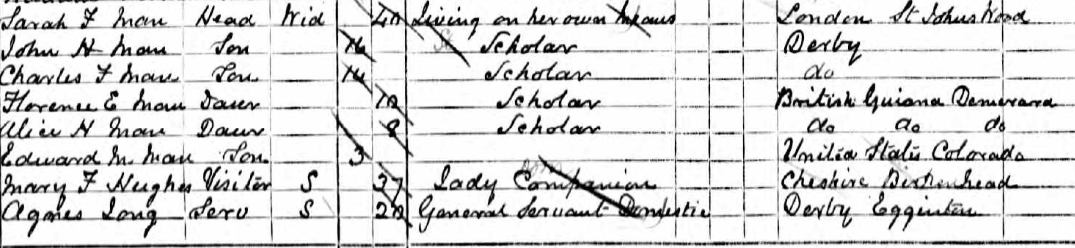 Sarah F Man Head Wid 40 Living on her own Means London St Johns Wood
John H Man Son 16 Scholar Derby
Charles F Man Son 14 Scholar do
Florence E Man Daur Scholar British Guiana Demerara
Alice H Man Daur 8 Scholar do do do
Edward M Man Son 3 United States Colorado
Mary F Hughes Visitor S 37 Lady Companion Cheshire Birkenhead
Agnes Long Serv S General Servant Domestic Derby Egginton